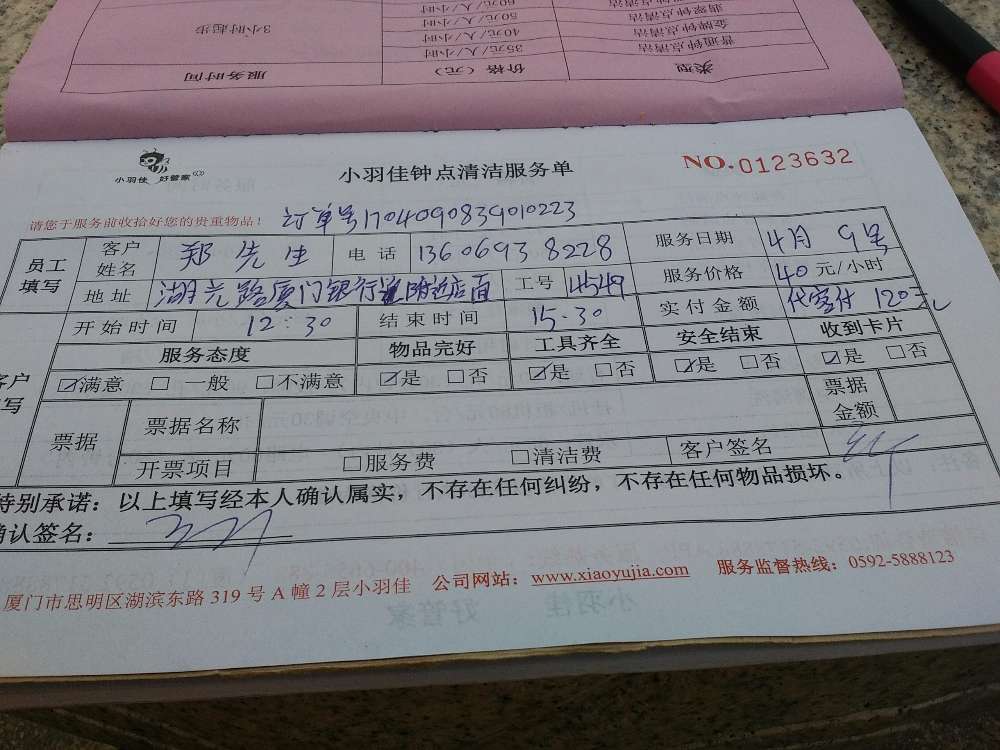 翡翠钟点清洁 60元/人/小时
金牌钟点清洁 50元/人/小时
普通钟点清洁 35元/人/小时 40元/人/小时 3小时起步
类型 价格（元） 服务时间
小羽佳 好管家
小羽佳钟点清洁服务单 NO.0123632
请您于服务前收拾好您的贵重物品！ 订单号1704090839010223
员工填写 客户姓名 郑先生 电话 13606938228 服务日期 4月9号
地址 湖光路厦门银行 附近店面 工号 4549 服务价格 40元/小时
开始时间 12:30 结束时间 15.30 实付金额 代客付120元
服务态度 物品完好 工具齐全 安全结束 收到卡片
☑满意 □一般 □不满意 ☑是 □否 ☑是 □否 ☑是 □否 ☑是 □否
票据 票据名称 票据金额
开票项目 □服务费 □清洁费 客户签名
特别承诺：以上填写经本人确认属实，不存在任何纠纷，不存在任何物品损坏。
确认签名：
厦门市思明区湖滨东路319号A幢2层小羽佳 公司网站：www.xiaoyujia.com 服务监督热线：0592-5888123